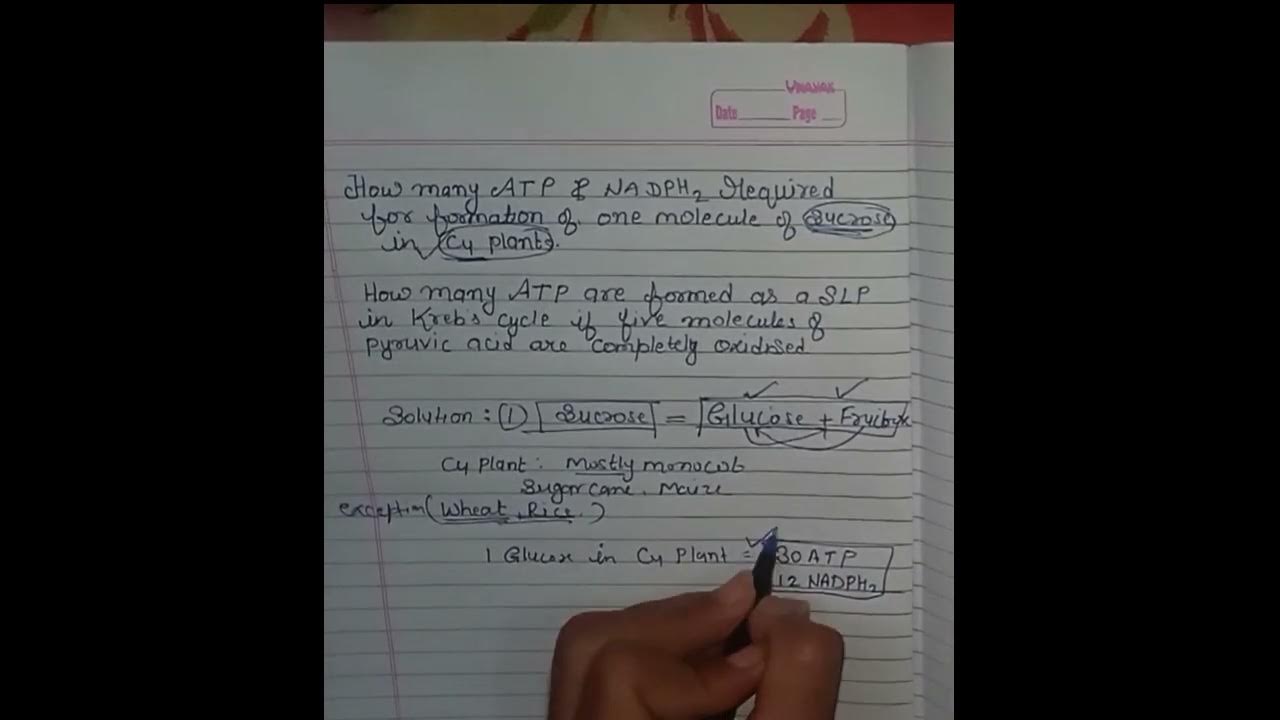 VINAYAK
Date Page
How many ATP & NADPH₂ Required
for formation of one molecule of Sucrose
in C4 plants.
How many ATP are formed as a SLP
in Kreb's cycle if five molecules of
pyruvic acid are completely oxidised
Solution: ① Sucrose = Glucose +
C4 Plant: Mostly monocot
Sugarcane, Maize
exception (Wheat, Rice.)
1 Glucose in C4 Plant = 30 ATP
12 NADPH₂